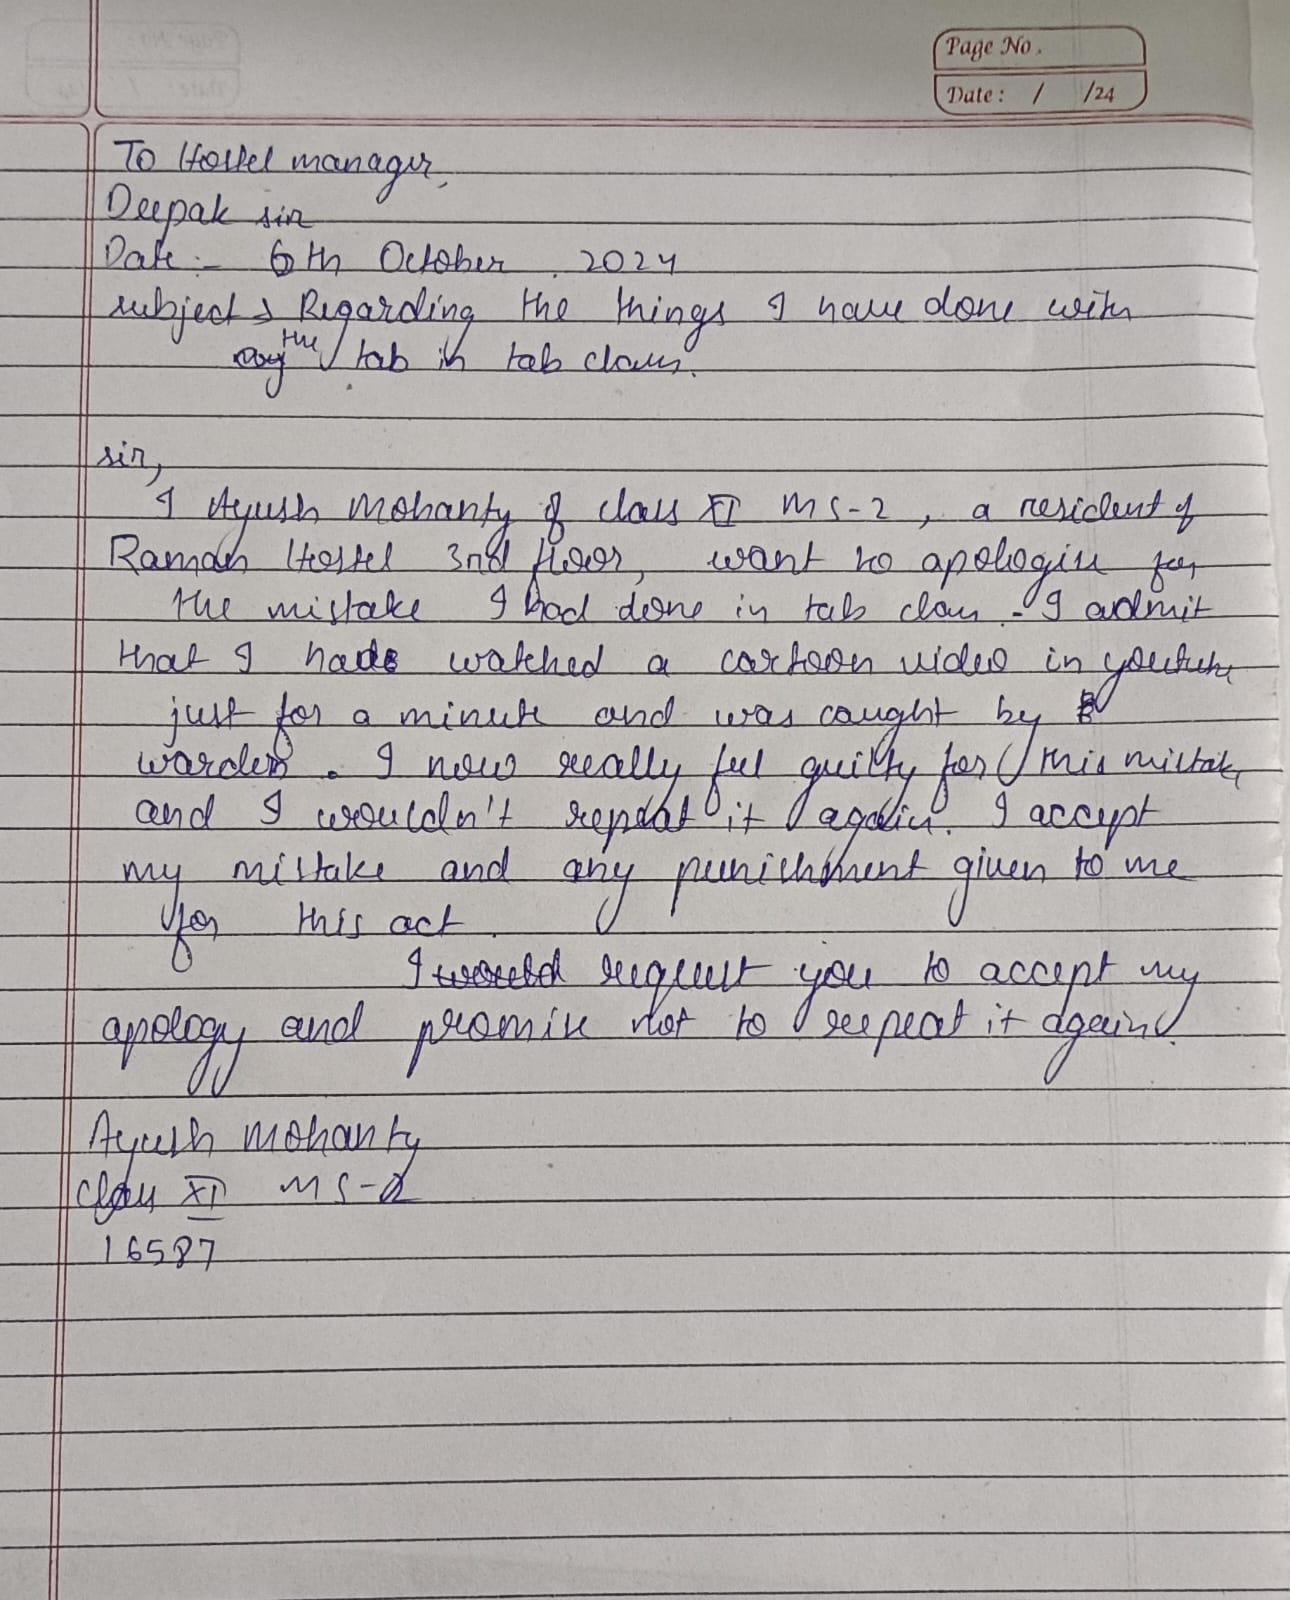 Page No.
Date: / /24
To Hostel manager,
Deepak sir
Date :- 6th October, 2024
subject → Regarding the things I have done with
the tab in tab class.
sir,
I Ayush Mohanty of class XI MS-2, a resident of
Raman Hostel 3rd floor, want to apologise for
the mistake I had done in tab class. I admit
that I had watched a cartoon video in youtube
just for a minute and was caught by
warden. I now really feel guilty for this mistake
and I wouldn't repeat it again. I accept
my mistake and any punishment given to me
for this act.
I would request you to accept my
apology and promise not to repeat it again.
Ayush Mohanty
class XI MS-2
16587